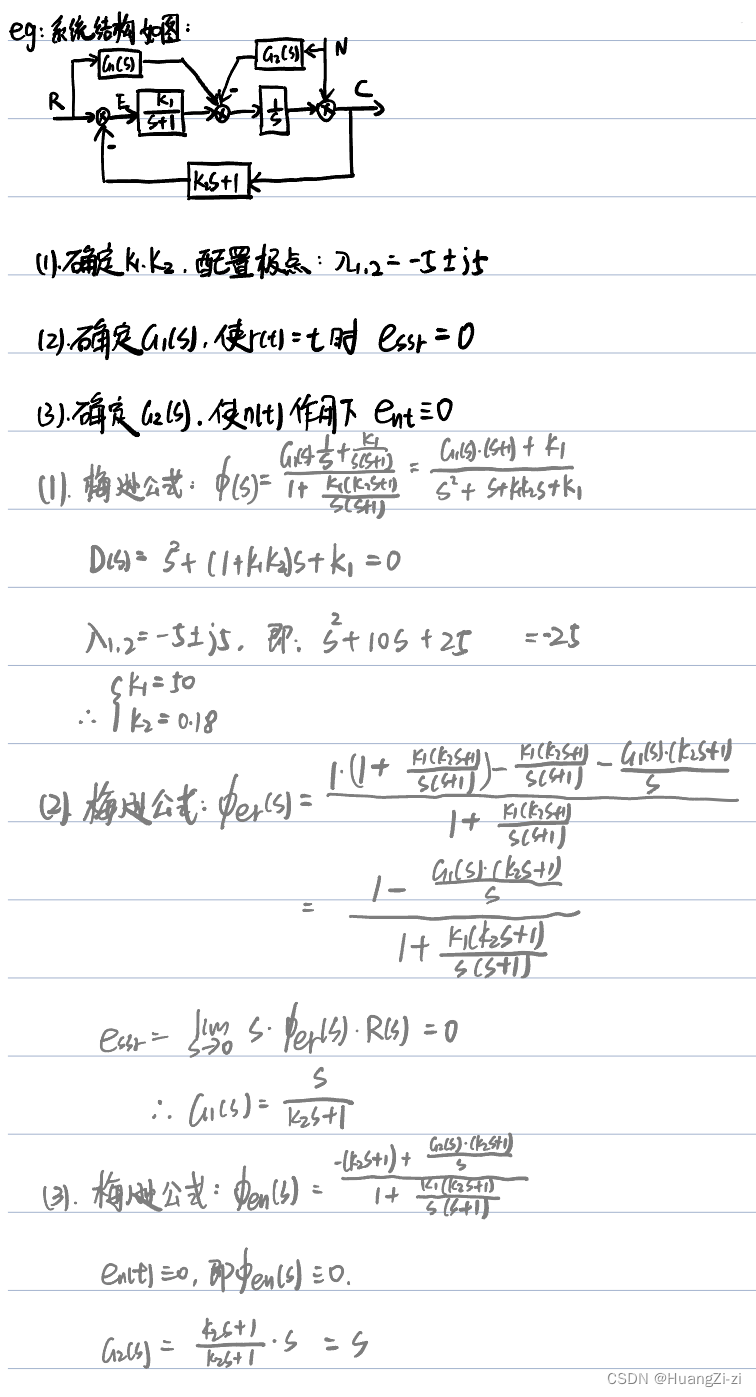 eg: 系统结构如图:
G₁(s) G₂(s) N
R E K₁/(s+1) 1/s C
- -
K₂s+1
(1). 确定K₁.K₂, 配置极点: λ₁,₂ = -5±j5
(2). 确定G₁(s), 使r(t)=t时 essr=0
(3). 确定G₂(s), 使n(t)作用下 ent≡0
(1). 梅逊公式: ϕ(s) = (G₁(s)·1/s + K₁/(s(s+1))) / (1 + K₁(K₂s+1)/(s(s+1))) = (G₁(s)·(s+1) + K₁) / (s² + s + K₁K₂s + K₁)
D(s) = s² + (1+K₁K₂)s + K₁ = 0
λ₁,₂ = -5±j5, 即: s² + 10s + 25 = -25
∴ { K₁ = 50
K₂ = 0.18
(2) 梅逊公式: ϕer(s) = (1·(1 + K₁(K₂s+1)/(s(s+1))) - K₁(K₂s+1)/(s(s+1)) - G₁(s)·(K₂s+1)/s) / (1 + K₁(K₂s+1)/(s(s+1)))
= (1 - G₁(s)·(K₂s+1)/s) / (1 + K₁(K₂s+1)/(s(s+1)))
essr = lim s→0 s·ϕer(s)·R(s) = 0
∴ G₁(s) = s/(K₂s+1)
(3). 梅逊公式: ϕen(s) = (-(K₂s+1) + G₂(s)·(K₂s+1)/s) / (1 + K₁(K₂s+1)/(s(s+1)))
en(t)≡0, 即ϕen(s)≡0.
G₂(s) = (K₂s+1)/(K₂s+1) · s = s
CSDN @HuangZi-zi